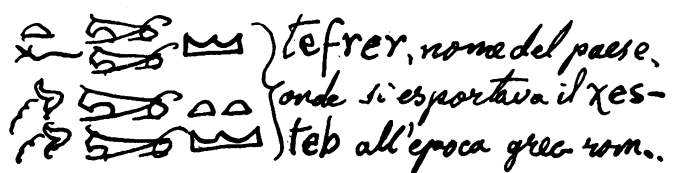 tefrer, nome del paese,
onde si esportava il χes-
teb all'epoca grec rom..